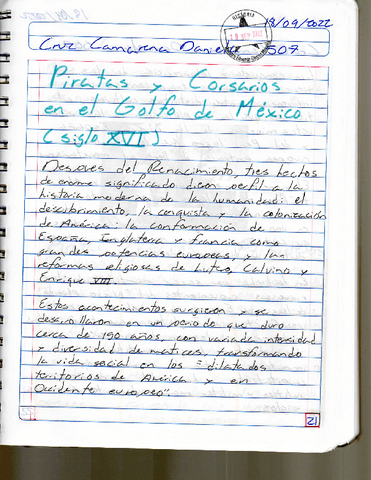 18/09/2022
Cruz Camarena Daniela 507
Piratas y Corsarios
en el Golfo de México
(siglo XVI)
Despues del Renacimiento, tres hechos
de enorme significado dieron perfil a la
historia moderna de la humanidad: el
descubrimiento, la conquista y la colonización
de América; la conformación de
España, Inglaterra y Francia como
grandes potencias europeas, y las
reformas religiosas de Lutero, Calvino y
Enrique VIII.
Estos acontecimientos surgieron y se
desarrollaron en un periodo que duro
cerca de 190 años, con variada intensidad
y diversidad de matices, transformando
la vida social en los "dilatados
territorios de América y en
Occidente europeo".
21